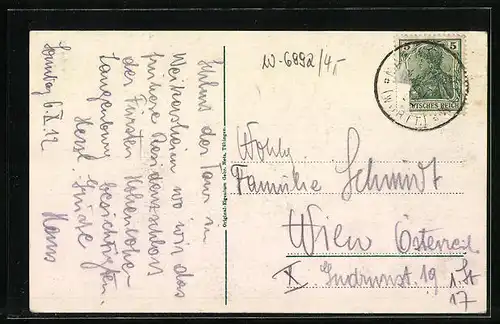 Sonntag 6 X 12
Halms der Tour in
Weikersheim wo wir das
frühere Residenzschloss
der Fürsten Hohenlohe-
Langenburg besichtigten.
Herzl. Grüße
Hans
Original-Eigentum Gebr. Metz, Tübingen.
W-6892/4,-
5 5
DEUTSCHES REICH
(WÜRTT.)
Wohlg.
Familie Schmidt
Wien Österreich
X Gudrunst. 19
1. St
17